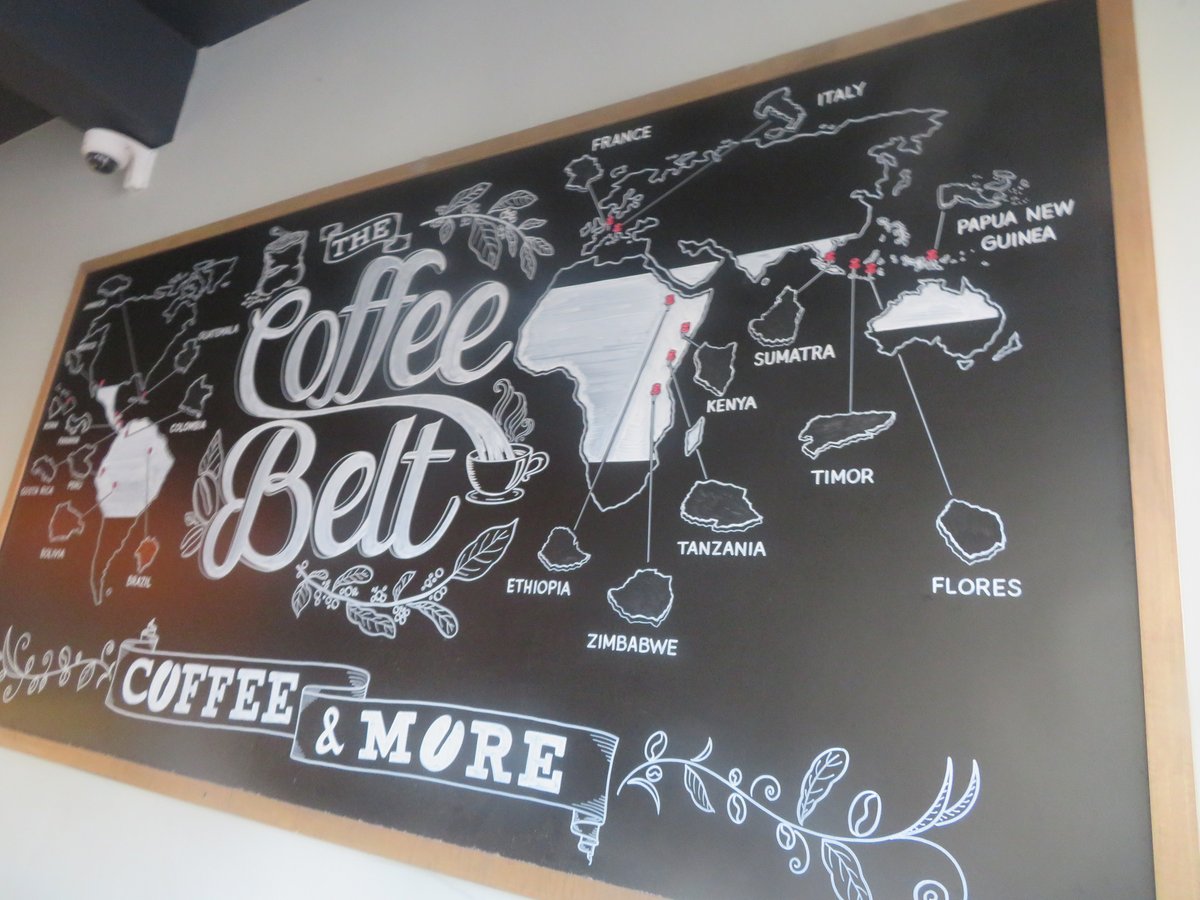 THE
Coffee
Belt
COFFEE
& MORE
GUATEMALA
COLOMBIA
COSTA RICA
PERU
BOLIVIA
BRAZIL
FRANCE
ITALY
PAPUA NEW
GUINEA
SUMATRA
KENYA
TIMOR
TANZANIA
ETHIOPIA
ZIMBABWE
FLORES